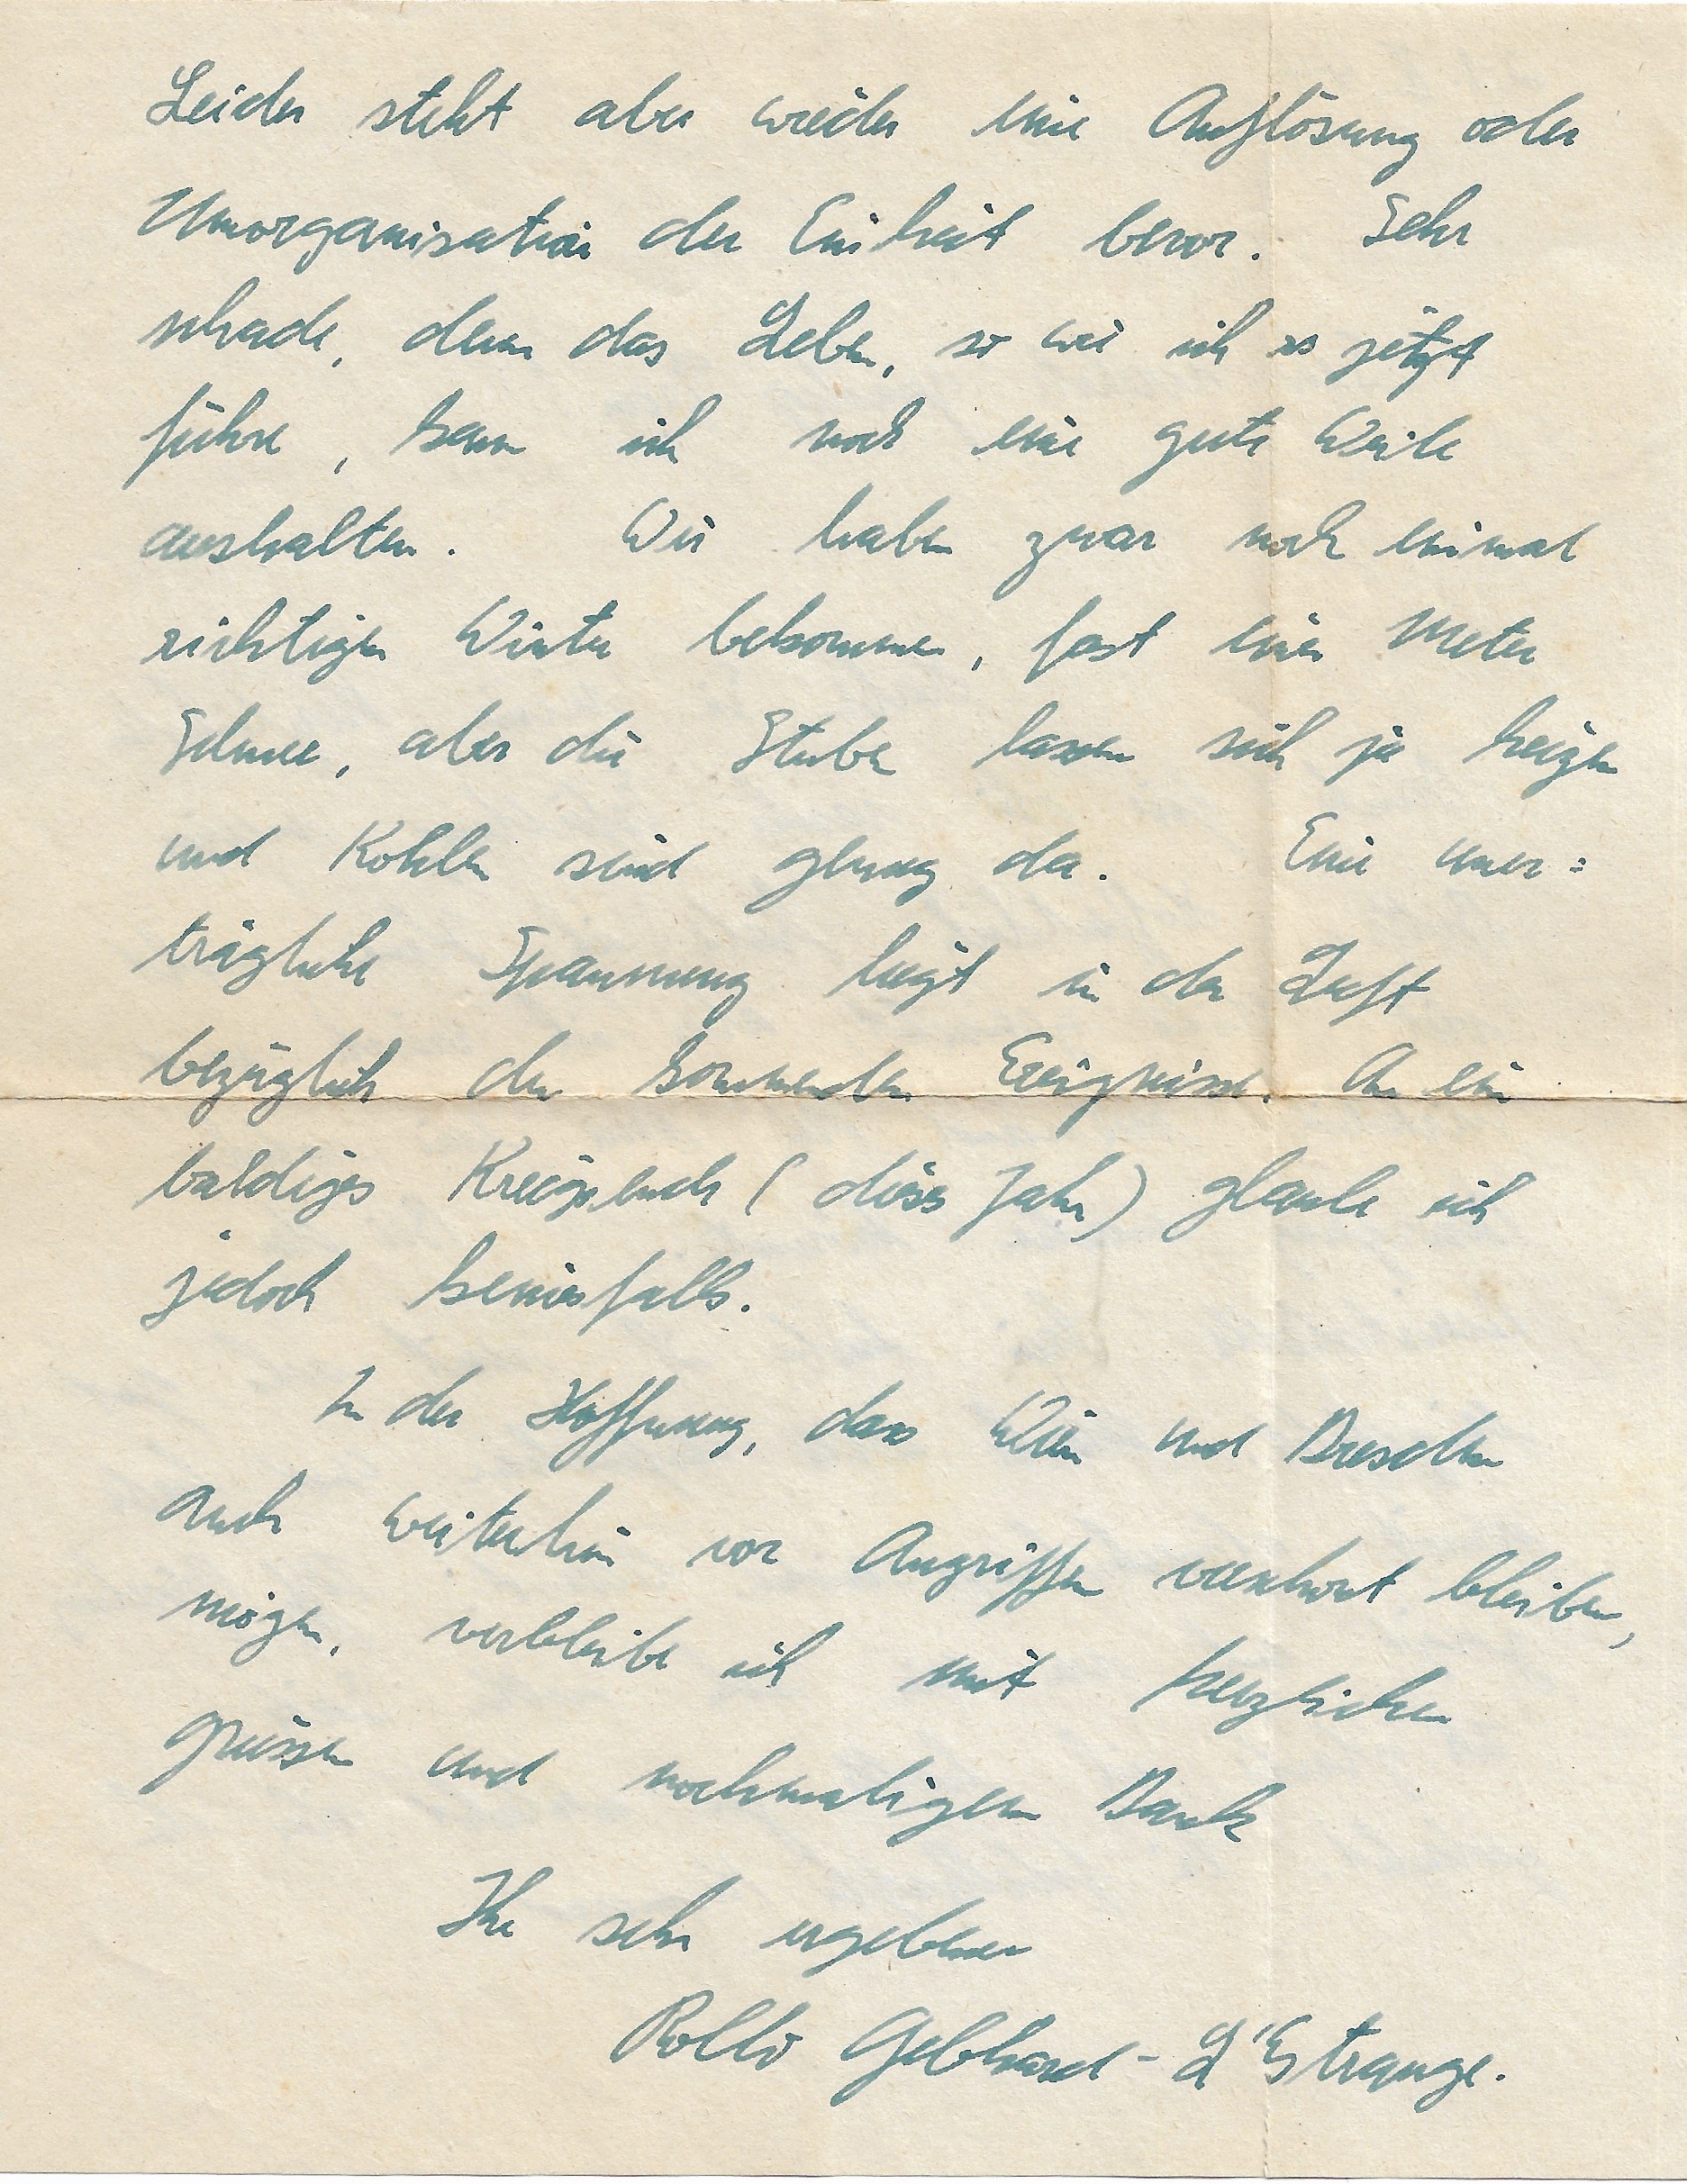 Leider steht aber wieder eine Auflösung oder
Umorganisation der Einheit bevor. Sehr
schade, denn das Leben, so wie ich es jetzt
führe, kann ich noch eine gute Weile
aushalten. Wir haben zwar noch einmal
richtigen Winter bekommen, fast einen Meter
Schnee, aber die Stuben lassen sich ja heizen
und Kohlen sind genug da. Eine uner=
trägliche Spannung liegt in der Luft
bezüglich der kommenden Ereignisse. An ein
baldiges Kriegsende (dieses Jahr) glaube ich
jedoch keinesfalls.
In der Hoffnung, dass Wien und Dresden
auch weiterhin vor Angriffen verschont bleiben,
mögen, verbleibe ich mit herzlichen
Grüssen und nochmaligem Dank
Ihr sehr ergebener
Rollo Gebhard-L'Estrange.